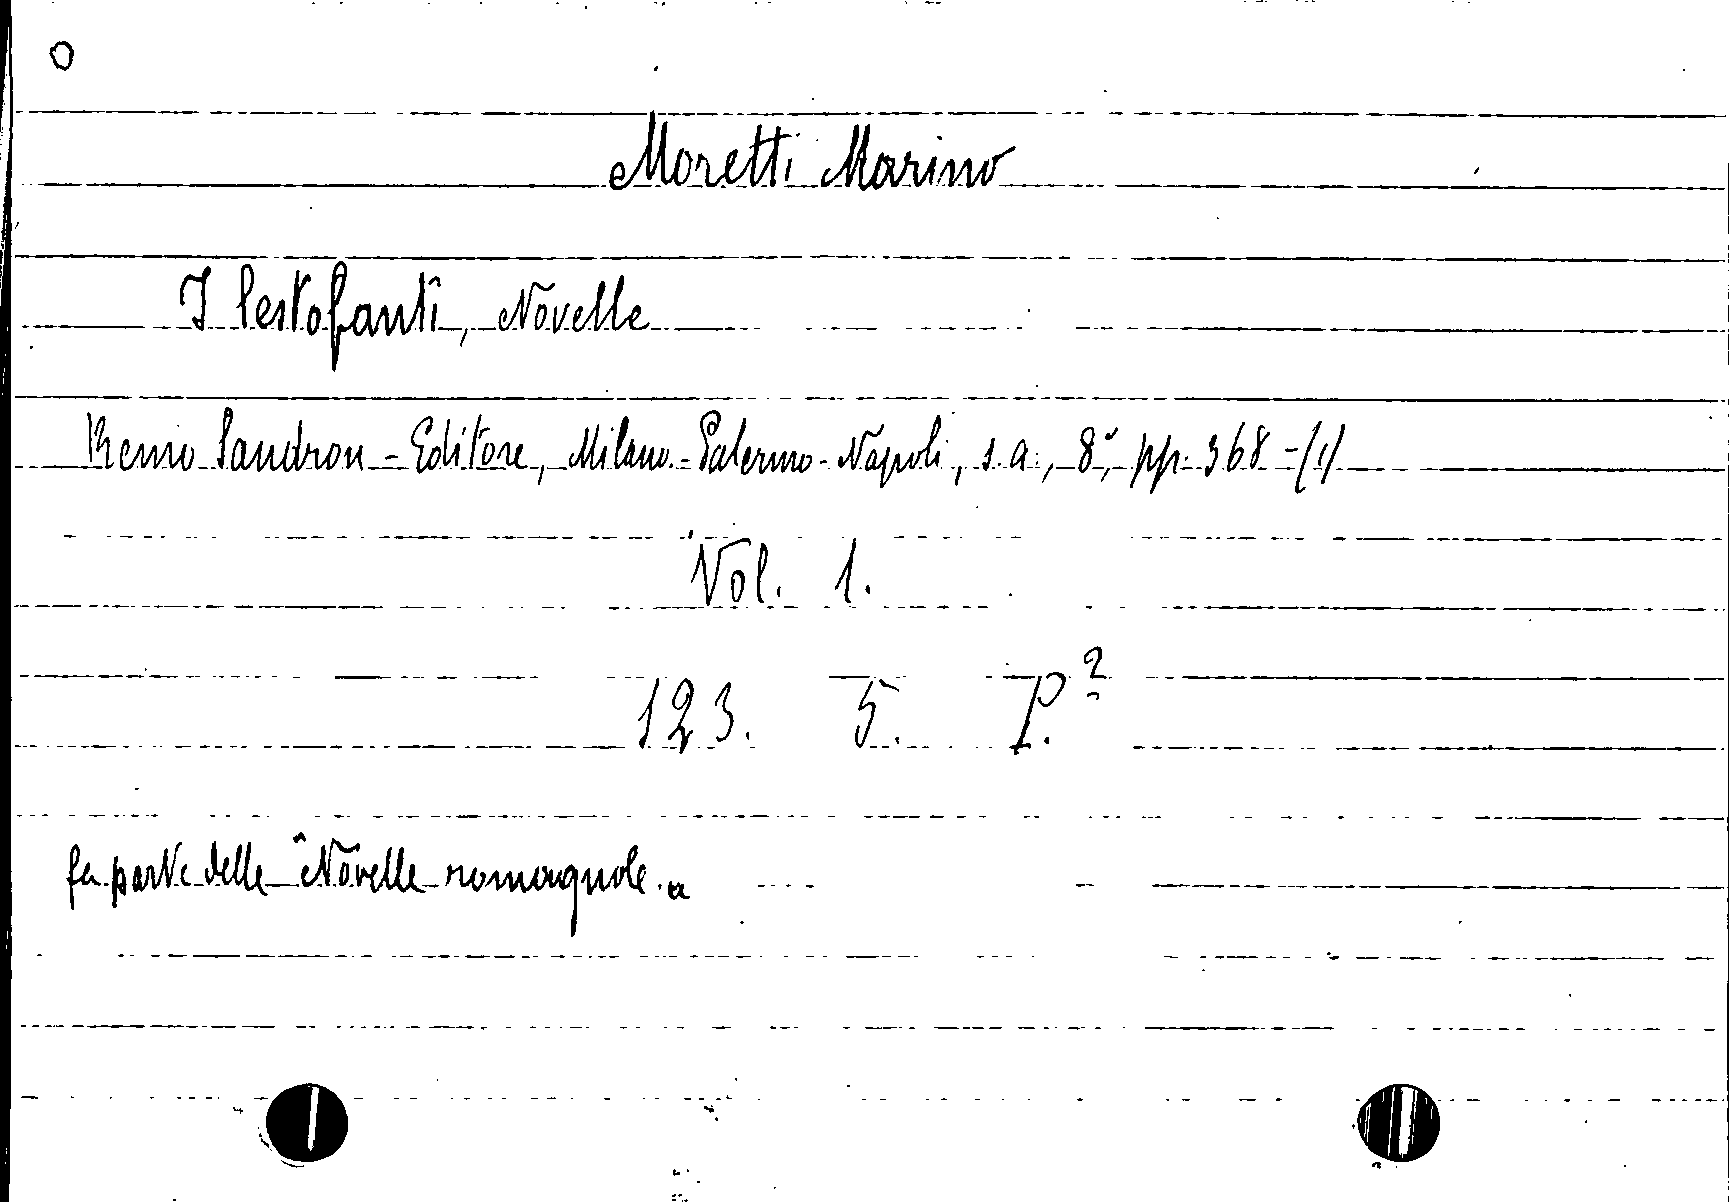 O
Moretti Marino
I lestofanti, Novelle
Remo Sandron - Editore, Milano - Palermo - Napoli, s. a., 8°, pp. 368 - (1)
Vol. 1.
123. 5. P.²
fa parte delle "Novelle romagnole."